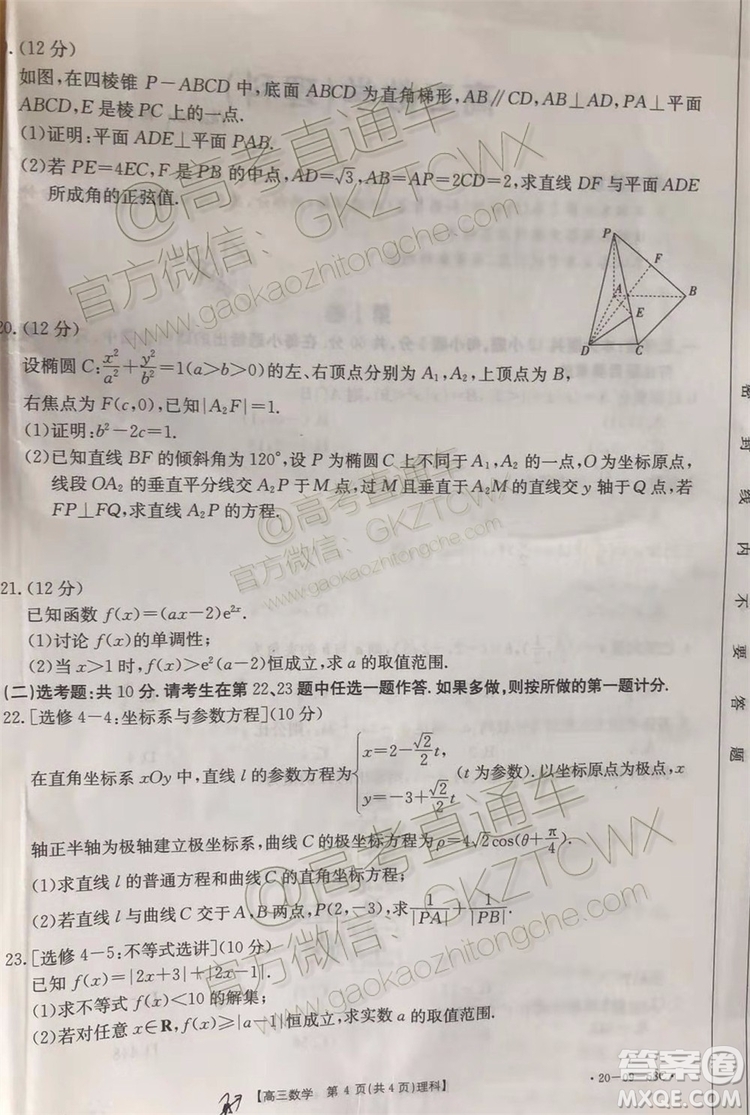 .(12分)
如图,在四棱锥 P-ABCD 中,底面 ABCD 为直角梯形,AB∥CD,AB⊥AD,PA⊥平面
ABCD,E 是棱 PC 上的一点.
(1)证明:平面 ADE⊥平面 PAB.
(2)若 PE=4EC,F 是 PB 的中点,AD=√3,AB=AP=2CD=2,求直线 DF 与平面 ADE
所成角的正弦值.
P
F
A
B
E
D
C
20.(12分)
设椭圆 C:x²/a²+y²/b²=1(a>b>0)的左、右顶点分别为 A₁,A₂,上顶点为 B,
右焦点为 F(c,0),已知|A₂F|=1.
(1)证明:b²-2c=1.
(2)已知直线 BF 的倾斜角为 120°,设 P 为椭圆 C 上不同于 A₁,A₂ 的一点,O 为坐标原点,
线段 OA₂ 的垂直平分线交 A₂P 于 M 点,过 M 且垂直于 A₂M 的直线交 y 轴于 Q 点,若
FP⊥FQ,求直线 A₂P 的方程.
21.(12分)
已知函数 f(x)=(ax-2)e²ˣ.
(1)讨论 f(x)的单调性;
(2)当 x>1 时,f(x)>e²(a-2)恒成立,求 a 的取值范围.
(二)选考题:共 10 分.请考生在第 22、23 题中任选一题作答.如果多做,则按所做的第一题计分.
22.[选修 4-4:坐标系与参数方程](10分)
在直角坐标系 xOy 中,直线 l 的参数方程为{x=2-(√2/2)t, y=-3+(√2/2)t (t 为参数).以坐标原点为极点,x
轴正半轴为极轴建立极坐标系,曲线 C 的极坐标方程为 ρ=4√2cos(θ+π/4).
(1)求直线 l 的普通方程和曲线 C 的直角坐标方程;
(2)若直线 l 与曲线 C 交于 A,B 两点,P(2,-3),求 1/|PA|+1/|PB|.
23.[选修 4-5:不等式选讲](10分)
已知 f(x)=|2x+3|+|2x-1|.
(1)求不等式 f(x)<10 的解集;
(2)若对任意 x∈R,f(x)≥|a-1|恒成立,求实数 a 的取值范围.
【高三数学 第 4 页(共 4 页)理科】
密封线内不要答题
@高考直通车
官方微信:GKZTCWX
www.gaokaozhitongche.com
@高考直通车
官方微信:GKZTCWX
www.gaokaozhitongche.com
@高考直通车
官方微信:GKZTCWX
www.gaokaozhitongche.com
答案圈
MXQE.COM